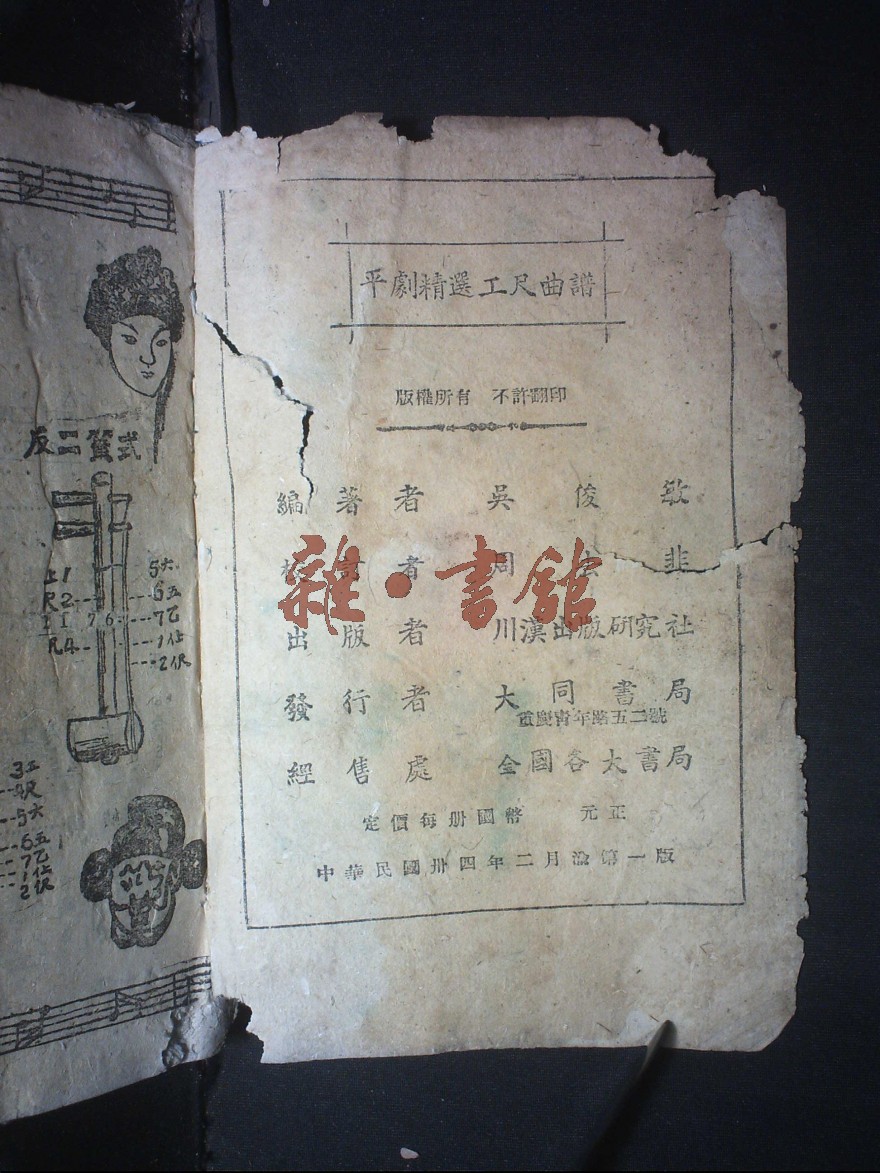 平劇精選工尺曲譜
版權所有 不許翻印
編著者 吳俊敏
訂者 周 韭
出版者 川漢出版研究社
發行者 大同書局
重慶青年路五二號
經售處 全國各大書局
定價每册國幣 元正
中華民國卅四年二月渝第一版
雜·書館
反二簧式
1 5六
尺2 6五
工 7 6 7乙
凡4 1仩
2伬
3工
4尺
5六
6五
7乙
1仩
2伬